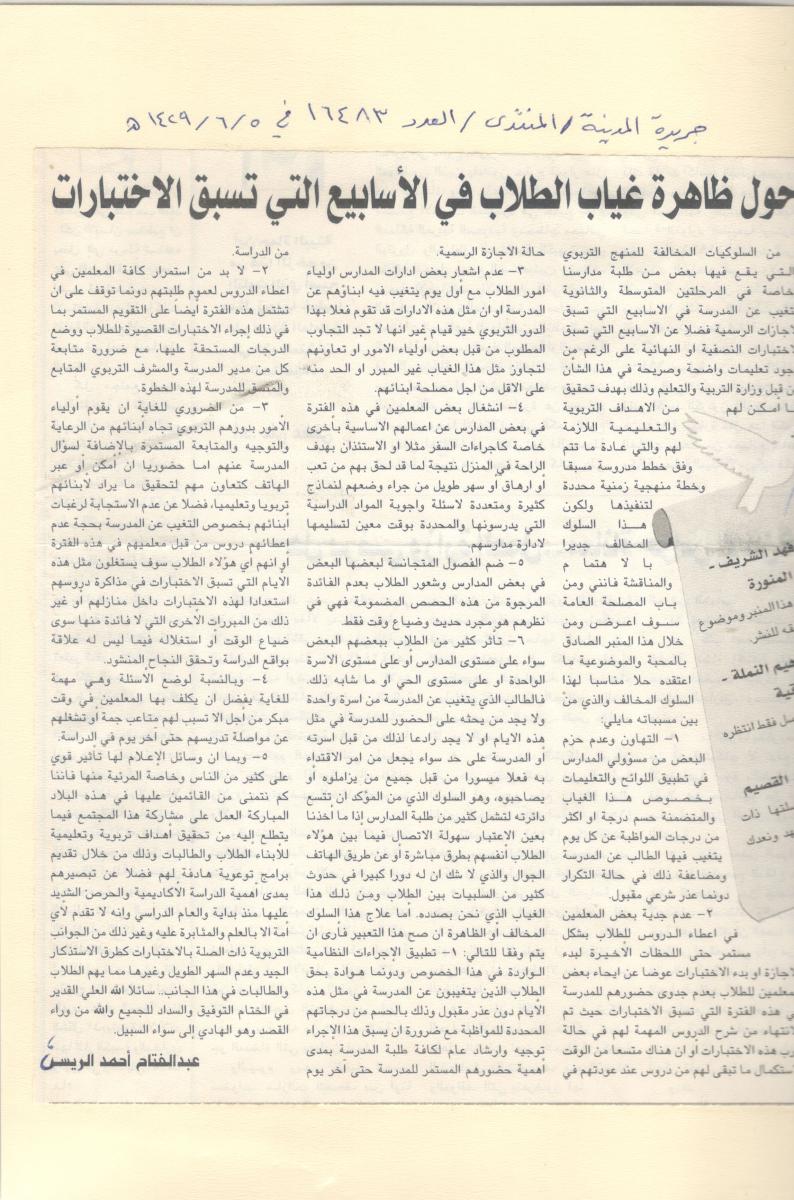 جريدة المدينة / المنتدى / العدد ١٦٤٨٣ في ١٤٢٩/٦/٥ هـ
حول ظاهرة غياب الطلاب في الأسابيع التي تسبق الاختبارات
من السلوكيات المخالفة للمنهج التربوي
التي يقع فيها بعض من طلبة مدارسنا
خاصة في المرحلتين المتوسطة والثانوية
تغيب عن المدرسة في الاسابيع التي تسبق
لاجازات الرسمية فضلا عن الاسابيع التي تسبق
لاختبارات النصفية او النهائية على الرغم من
جود تعليمات واضحة وصريحة في هذا الشأن
ن قبل وزارة التربية والتعليم وذلك بهدف تحقيق
ا أمكن لهم من الاهداف التربوية
والتعليمية اللازمة
لهم والتي عادة ما تتم
وفق خطط مدروسة مسبقا
وخطة منهجية زمنية محددة
لتنفيذها ولكون
هذا السلوك
المخالف جديرا
بالاهتمام
والمناقشة فانني ومن
باب المصلحة العامة
سوف اعرض ومن
خلال هذا المنبر الصادق
بالمحبة والموضوعية ما
اعتقده حلا مناسبا لهذا
السلوك المخالف والذي من
بين مسبباته مايلي:
١- التهاون وعدم حزم
البعض من مسؤولي المدارس
في تطبيق اللوائح والتعليمات
بخصوص هذا الغياب
والمتضمنة حسم درجة او اكثر
من درجات المواظبة عن كل يوم
يتغيب فيها الطالب عن المدرسة
ومضاعفة ذلك في حالة التكرار
دونما عذر شرعي مقبول.
٢- عدم جدية بعض المعلمين
في اعطاء الدروس للطلاب بشكل
مستمر حتى اللحظات الأخيرة لبدء
لاجازة او بدء الاختبارات عوضا عن ايحاء بعض
لمعلمين للطلاب بعدم جدوى حضورهم للمدرسة
ي هذه الفترة التي تسبق الاختبارات حيث تم
لانتهاء من شرح الدروس المهمة لهم في حالة
رب هذه الاختبارات او ان هناك متسعا من الوقت
استكمال ما تبقى لهم من دروس عند عودتهم في
حالة الاجازة الرسمية.
٣- عدم اشعار بعض ادارات المدارس اولياء
امور الطلاب مع اول يوم يتغيب فيه ابناؤهم عن
المدرسة او ان مثل هذه الادارات قد تقوم فعلا بهذا
الدور التربوي خير قيام غير انها لا تجد التجاوب
المطلوب من قبل بعض أولياء الامور او تعاونهم
لتجاوز مثل هذا الغياب غير المبرر او الحد منه
على الاقل من اجل مصلحة ابنائهم.
٤- انشغال بعض المعلمين في هذه الفترة
في بعض المدارس عن اعمالهم الاساسية بأخرى
خاصة كاجراءات السفر مثلا او الاستئذان بهدف
الراحة في المنزل نتيجة لما قد لحق بهم من تعب
أو ارهاق أو سهر طويل من جراء وضعهم لنماذج
كثيرة ومتعددة لاسئلة واجوبة المواد الدراسية
التي يدرسونها والمحددة بوقت معين لتسليمها
لادارة مدارسهم.
٥- ضم الفصول المتجانسة لبعضها البعض
في بعض المدارس وشعور الطلاب بعدم الفائدة
المرجوة من هذه الحصص المضمومة فهي في
نظرهم هو مجرد حديث وضياع وقت فقط.
٦- تأثر كثير من الطلاب ببعضهم البعض
سواء على مستوى المدارس أو على مستوى الاسرة
الواحدة او على مستوى الحي او ما شابه ذلك.
فالطالب الذي يتغيب عن المدرسة من اسرة واحدة
ولا يجد من يحثه على الحضور للمدرسة في مثل
هذه الايام او لا يجد رادعا لذلك من قبل اسرته
أو المدرسة على حد سواء يجعل من امر الاقتداء
به فعلا ميسورا من قبل جميع من يزاملوه أو
يصاحبوه، وهو السلوك الذي من المؤكد ان تتسع
دائرته لتشمل كثير من طلبة المدارس إذا ما أخذنا
بعين الاعتبار سهولة الاتصال فيما بين هؤلاء
الطلاب أنفسهم بطرق مباشرة أو عن طريق الهاتف
الجوال والذي لا شك ان له دورا كبيرا في حدوث
كثير من السلبيات بين الطلاب ومن ذلك هذا
الغياب الذي نحن بصدده. أما علاج هذا السلوك
المخالف أو الظاهرة ان صح هذا التعبير فأرى ان
يتم وفقا للتالي: ١- تطبيق الإجراءات النظامية
الواردة في هذا الخصوص ودونما هوادة بحق
الطلاب الذين يتغيبون عن المدرسة في مثل هذه
الأيام دون عذر مقبول وذلك بالحسم من درجاتهم
المحددة للمواظبة مع ضرورة ان يسبق هذا الإجراء
توجيه وارشاد عام لكافة طلبة المدرسة بمدى
اهمية حضورهم المستمر للمدرسة حتى آخر يوم
من الدراسة.
٢- لا بد من استمرار كافة المعلمين في
اعطاء الدروس لعموم طلبتهم دونما توقف على ان
تشتمل هذه الفترة ايضاً على التقويم المستمر بما
في ذلك إجراء الاختبارات القصيرة للطلاب ووضع
الدرجات المستحقة عليها، مع ضرورة متابعة
كل من مدير المدرسة والمشرف التربوي المتابع
والمنسق للمدرسة لهذه الخطوة.
٣- من الضروري للغاية ان يقوم أولياء
الأمور بدورهم التربوي تجاه أبنائهم من الرعاية
والتوجيه والمتابعة المستمرة بالإضافة لسؤال
المدرسة عنهم اما حضوريا ان أمكن أو عبر
الهاتف كتعاون مهم لتحقيق ما يراد لأبنائهم
تربويا وتعليميا، فضلا عن عدم الاستجابة لرغبات
أبنائهم بخصوص التغيب عن المدرسة بحجة عدم
إعطائهم دروس من قبل معلميهم في هذه الفترة
أو انهم أي هؤلاء الطلاب سوف يستغلون مثل هذه
الايام التي تسبق الاختبارات في مذاكرة دروسهم
استعدادا لهذه الاختبارات داخل منازلهم او غير
ذلك من المبررات الأخرى التي لا فائدة منها سوى
ضياع الوقت أو استغلاله فيما ليس له علاقة
بواقع الدراسة وتحقق النجاح المنشود.
٤- وبالنسبة لوضع الاسئلة وهي مهمة
للغاية يفضل ان يكلف بها المعلمين في وقت
مبكر من أجل الا تسبب لهم متاعب جمة أو تشغلهم
عن مواصلة تدريسهم حتى آخر يوم في الدراسة.
٥- وبما ان وسائل الإعلام لها تأثير قوي
على كثير من الناس وخاصة المرئية منها فاننا
كم نتمنى من القائمين عليها في هذه البلاد
المباركة العمل على مشاركة هذا المجتمع فيما
يتطلع إليه من تحقيق أهداف تربوية وتعليمية
للأبناء الطلاب والطالبات وذلك من خلال تقديم
برامج توعوية هادفة لهم فضلا عن تبصيرهم
بمدى أهمية الدراسة الاكاديمية والحرص الشديد
عليها منذ بداية والعام الدراسي وانه لا تقدم لأي
أمة الا بالعلم والمثابرة عليه وغير ذلك من الجوانب
التربوية ذات الصلة بالاختبارات كطرق الاستذكار
الجيد وعدم السهر الطويل وغيرها مما يهم الطلاب
والطالبات في هذا الجانب.. سائلا الله العلي القدير
في الختام التوفيق والسداد للجميع والله من وراء
القصد وهو الهادي إلى سواء السبيل.
عبدالفتاح أحمد الريس
فهد الشريف -
المنورة
هذا المنبر وموضوع
قه للنشر.
هيم النملة -
قية
صل فقط انتظره
القصيم
سلتها ذات
هد ونعدك